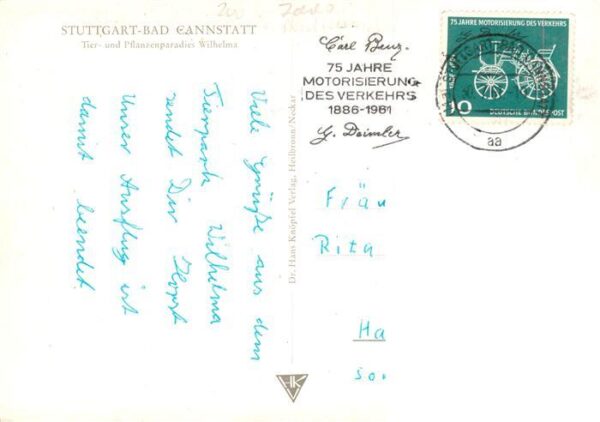 STUTTGART-BAD CANNSTATT
Tier- und Pflanzenparadies Wilhelma
Viele Grüße aus dem
Tierpark Wilhelma
sendet Dir Horst
Unser Ausflug ist
damit beendet
Dr. Hans Knöpfel Verlag, Heilbronn/Neckar
HK
Carl Benz
75 JAHRE
MOTORISIERUNG
DES VERKEHRS
1886-1961
G. Daimler
75 JAHRE MOTORISIERUNG DES VERKEHRS
10
DEUTSCHE BUNDESPOST
aa
Fräu
Rita
Ha